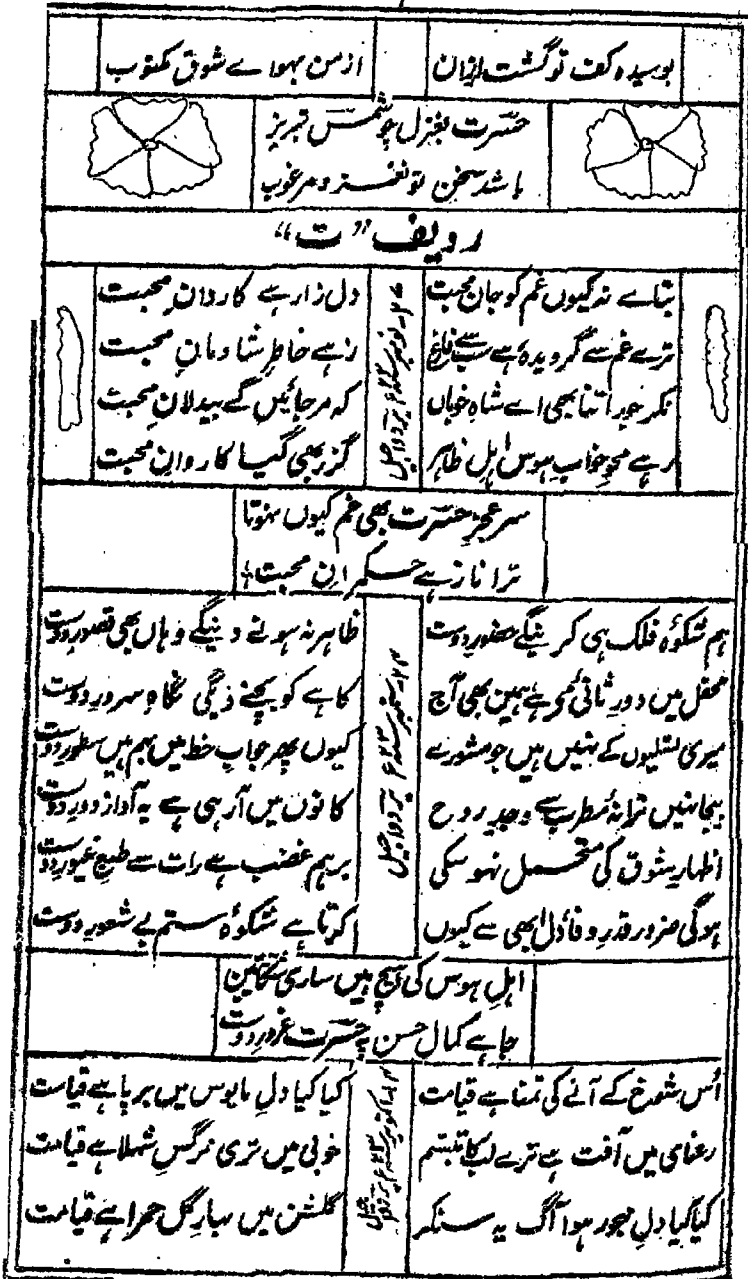 بوسیدہ کف تو گشت ازان ازمن بہواے شوق مکتوب
حسرت بغزل چو شمس تبریز
باشد سخن تو نغز و مرغوب
ردیف "ت"
بتاے نہ کیوں غم کو جان محبت دل زار ہے کاروانِ محبت
ترے غم سے گرویدہ ہے سب سے فارغ زہے خاطرِ شادمانِ محبت
نکر جور اتنا بھی اے شاہِ خوباں کہ مر جائیں گے بیدلانِ محبت
رہے محوِ خوابِ ہوس اہلِ ظاہر گزر بھی گیا کاروانِ محبت
سرِ عجزِ حسرت بھی خم کیوں نہوتا
ترا ناز ہے حکمرانِ محبت
ہم شکوۂ فلک ہی کرینگے حضورِ دوست ظاہر نہ ہونے دینگے وہاں بھی قصورِ دوست
محفل میں دور ثانیٔ مے ہے ہمیں بھی آج کاہے کو بچنے دیگی نگاہِ سرورِ دوست
میری تسلیوں کے نہیں ہیں جو مشورے کیوں پھر حجابِ خط میں بہم ہیں سطورِ دوست
بیجا نہیں ترانۂ مطرب سے وجدِ روح کانوں میں آ رہی ہے یہ آواز دورِ دوست
اظہارِ شوق کی متحمل نہو سکی برہم غضب ہے رات سے طبعِ غیورِ دوست
ہوگی ضرور قدرِ وفا دل ابھی سے کیوں کرتا ہے شکوۂ ستمِ بے شعورِ دوست
اہلِ ہوس کی ہیچ ہیں ساری
چاہے کمال حسن پہ حسرت غرورِ دوست
اُس شوخ کے آنے کی تمنا ہے قیامت کیا کیا دلِ مایوس میں برپا ہے قیامت
رعنای میں آفت ہے ترے لب کا تبسّم خوبی میں تری نرگسِ شہلا ہے قیامت
کیا کیا دلِ مہجور ہوا آگ یہ سنکر گلشن میں بہارِ گل حمرا ہے قیامت